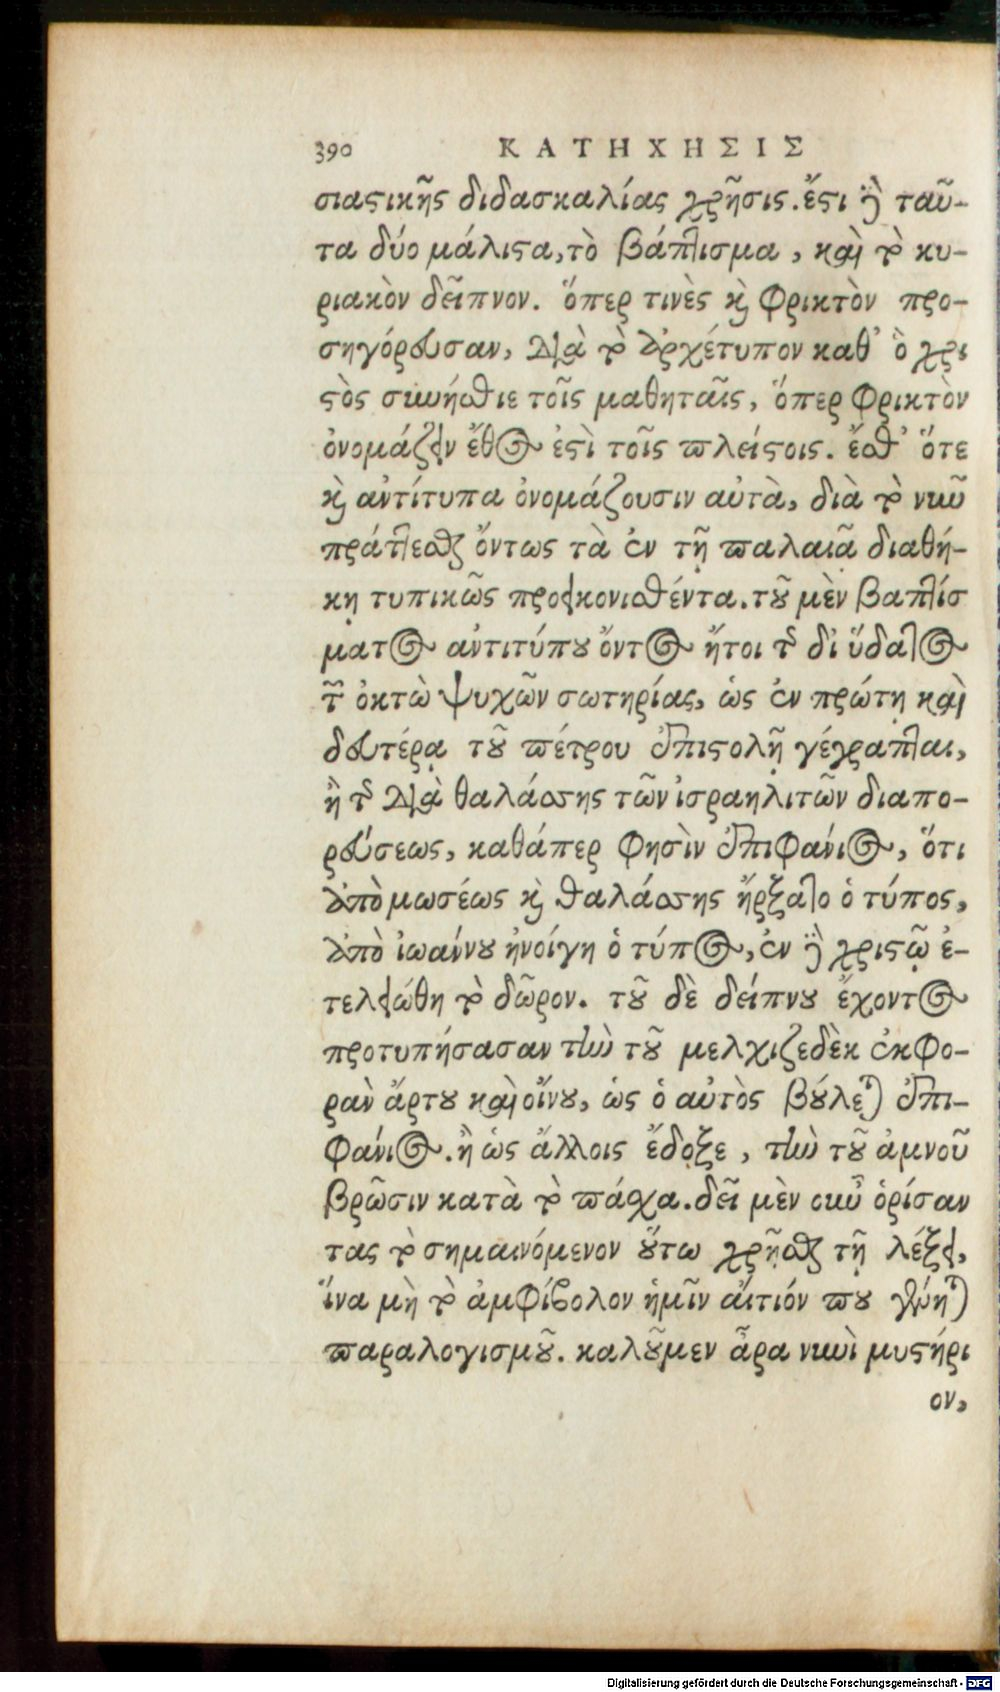 390 ΚΑΤΗΧΗΣΙΣ
σιαϛικῆς διδασκαλίας χρῆσις. ἔϛι δὲ ταῦ-
τα δύο μάλιϛα, τὸ βάπτισμα, καὶ τὸ κυ-
ριακὸν δεῖπνον. ὅπερ τινὲς καὶ φρικτὸν προ-
σηγόρευσαν, διὰ τὸ ἀρχέτυπον καθ’ ὃ χρι
ϛὸς συνήσθιε τοῖς μαθηταῖς, ὅπερ φρικτὸν
ὀνομάζειν ἔθος ἐϛὶ τοῖς πλείϛοις. ἔσθ’ ὅτε
καὶ ἀντίτυπα ὀνομάζουσιν αὐτὰ, διὰ τὸ νῦν
πράττεσθαι ὄντως τὰ ἐν τῇ παλαιᾷ διαθή-
κῃ τυπικῶς προεικονισθέντα. τοῦ μὲν βαπτίσ
ματος ἀντιτύπου ὄντος ἤτοι τῆς δι ὕδατος
τῶν ὀκτὼ ψυχῶν σωτηρίας, ὡς ἐν πρώτῃ καὶ
δευτέρᾳ τοῦ πέτρου ἐπιϛολῇ γέγραπται,
ἢ τῆς διὰ θαλάσσης τῶν ἰσραηλιτῶν διαπο-
ρεύσεως, καθάπερ φησὶν ἐπιφάνιος, ὅτι
ἀπὸ μωσέως καὶ θαλάσσης ἤρξατο ὁ τύπος,
ἀπὸ ἰωαίνου ἠνοίγη ὁ τύπος, ἐν δὲ χριϛῷ ἐ-
τελειώθη τὸ δῶρον. τοῦ δὲ δείπνου ἔχοντος
προτυπήσασαν τὴν τοῦ μελχιζεδὲκ ἐκφο-
ρὰν ἄρτου καὶ οἴνου, ὡς ὁ αὐτὸς βούλεται ἐπι-
φάνιος. ἢ ὡς ἄλλοις ἔδοξε, τὴν τοῦ ἀμνοῦ
βρῶσιν κατὰ τὸ πάσχα. δεῖ μὲν οὖν ὁρίσαν
τας τὸ σημαινόμενον οὕτω χρῆσθαι τῇ λέξει,
ἵνα μὴ τὸ ἀμφίβολον ἡμῖν αἴτιόν που γένηται
παραλογισμοῦ. καλοῦμεν ἆρα νυνὶ μυϛήρι
ον,
Digitalisierung gefördert durch die Deutsche Forschungsgemeinschaft - DFG